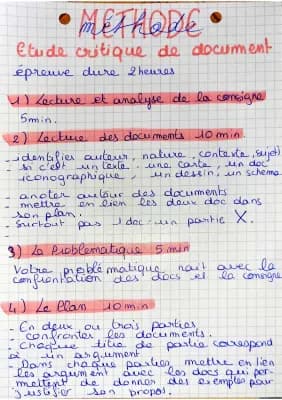 METHODE
méthode
Etude critique de document
épreuve dure 2 heures
1) Lecture et analyse de la consigne
5 min.
2) Lecture des documents 10 min
- identifier auteur, nature, contexte, sujet)
si c'est un texte, une carte, un doc
iconographique, un dessin, un schéma
- anoter autour des documents
- mettre en lien les deux doc dans
son plan.
- Surtout pas 1 doc = un partie X.
3) La Problématique 5 min
Votre problématique nait avec la
confrontation des docs et la consigne
4) Le Plan 10 min
- En deux ou trois parties
- confronter les documents.
- Chaque titre de partie correspond
à un argument
- Dans chaque parties, mettre en lien
les argument avec les docs qui per-
mettent de donner des exemples pour
justifier son propos.